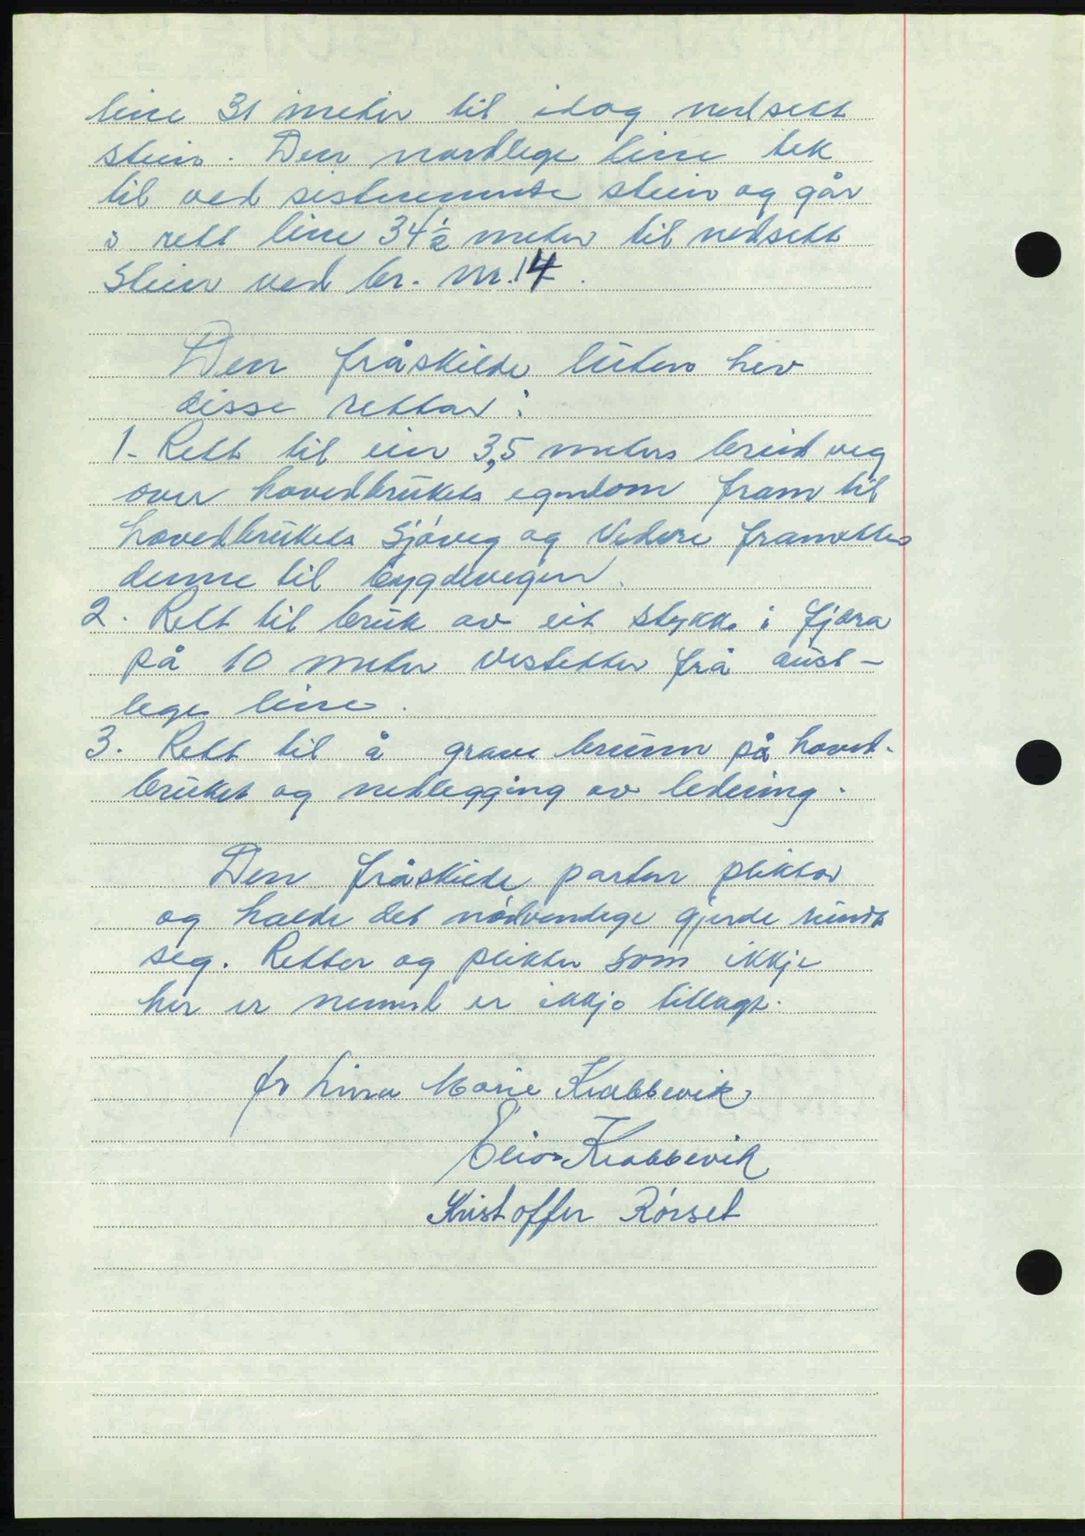 line 31 meter til idag nedsett
stein. Den nordlege line tek
til ved sistnemnte stein og går
i rett line 34½ meter til nedsett
stein ved br. nr. 14.
Den fråskilde luten hev
disse rettar:
1. Rett til ein 3,5 meters breid veg
over hovedbrukets egendom fram til
hovedbrukets sjøveg og videre framettes
denne til bygdevegen.
2. Rett til bruk av eit stykke i fjæra
på 10 meter vestetter frå aust-
lege line.
3. Rett til å grave brunn på hoved-
bruket og nedlegging av ledning.
Den fråskilde parten pliktar
og halde det nødvendige gjerde rundt
seg. Retter og plikter som ikkje
her er nemnd er ikkje tillagt.
for Linna Marie Krabbevik
Krabbevik
Kristoffer Rørset